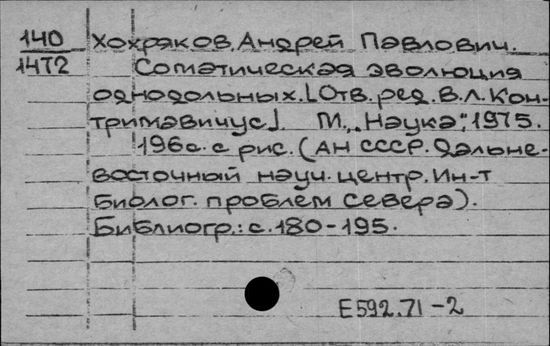 140 Хохряков, Андрей Павлович.
14T2 Соматическая эволюция
однодольных. [Отв. ред. В.Л. Кон-
тримавичус]. М., "Наука", 1975.
196 с. с рис. (АН СССР. Дальне-
восточный науч. центр. Ин-т
биолог. проблем Севера).
Библиогр.: с. 180-195.
E592.71-2